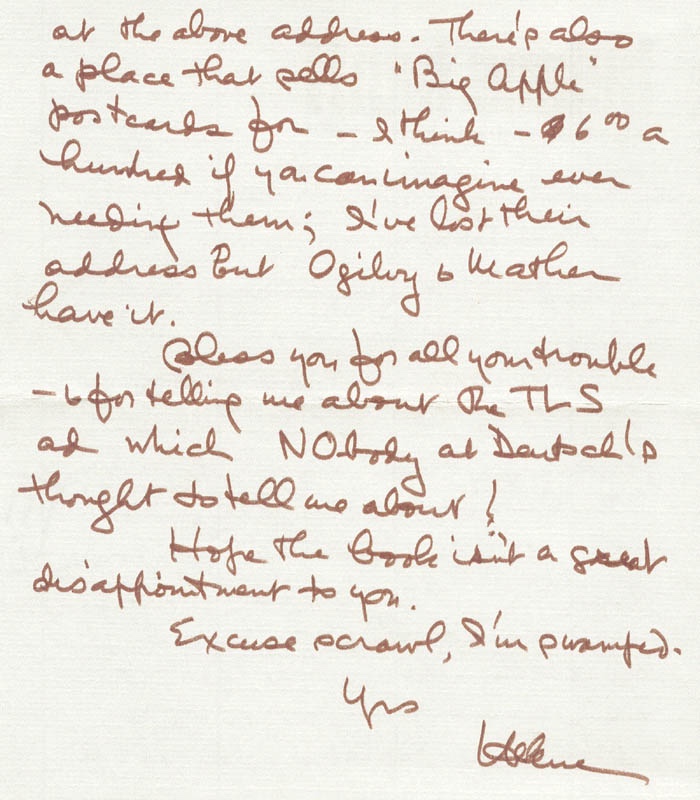 at the above address. There's also
a place that sells "Big Apple"
postcards for – I think – $6.00 a
hundred if you can imagine ever
needing them; I've lost their
address but Ogilvy & Mather
have it.
Bless you for all your trouble
– & for telling me about the TLS
ad which NObody at Deutsch's
thought to tell me about!
Hope the book isn't a great
disappointment to you.
Excuse scrawl, I'm swamped.
Yrs
Helene